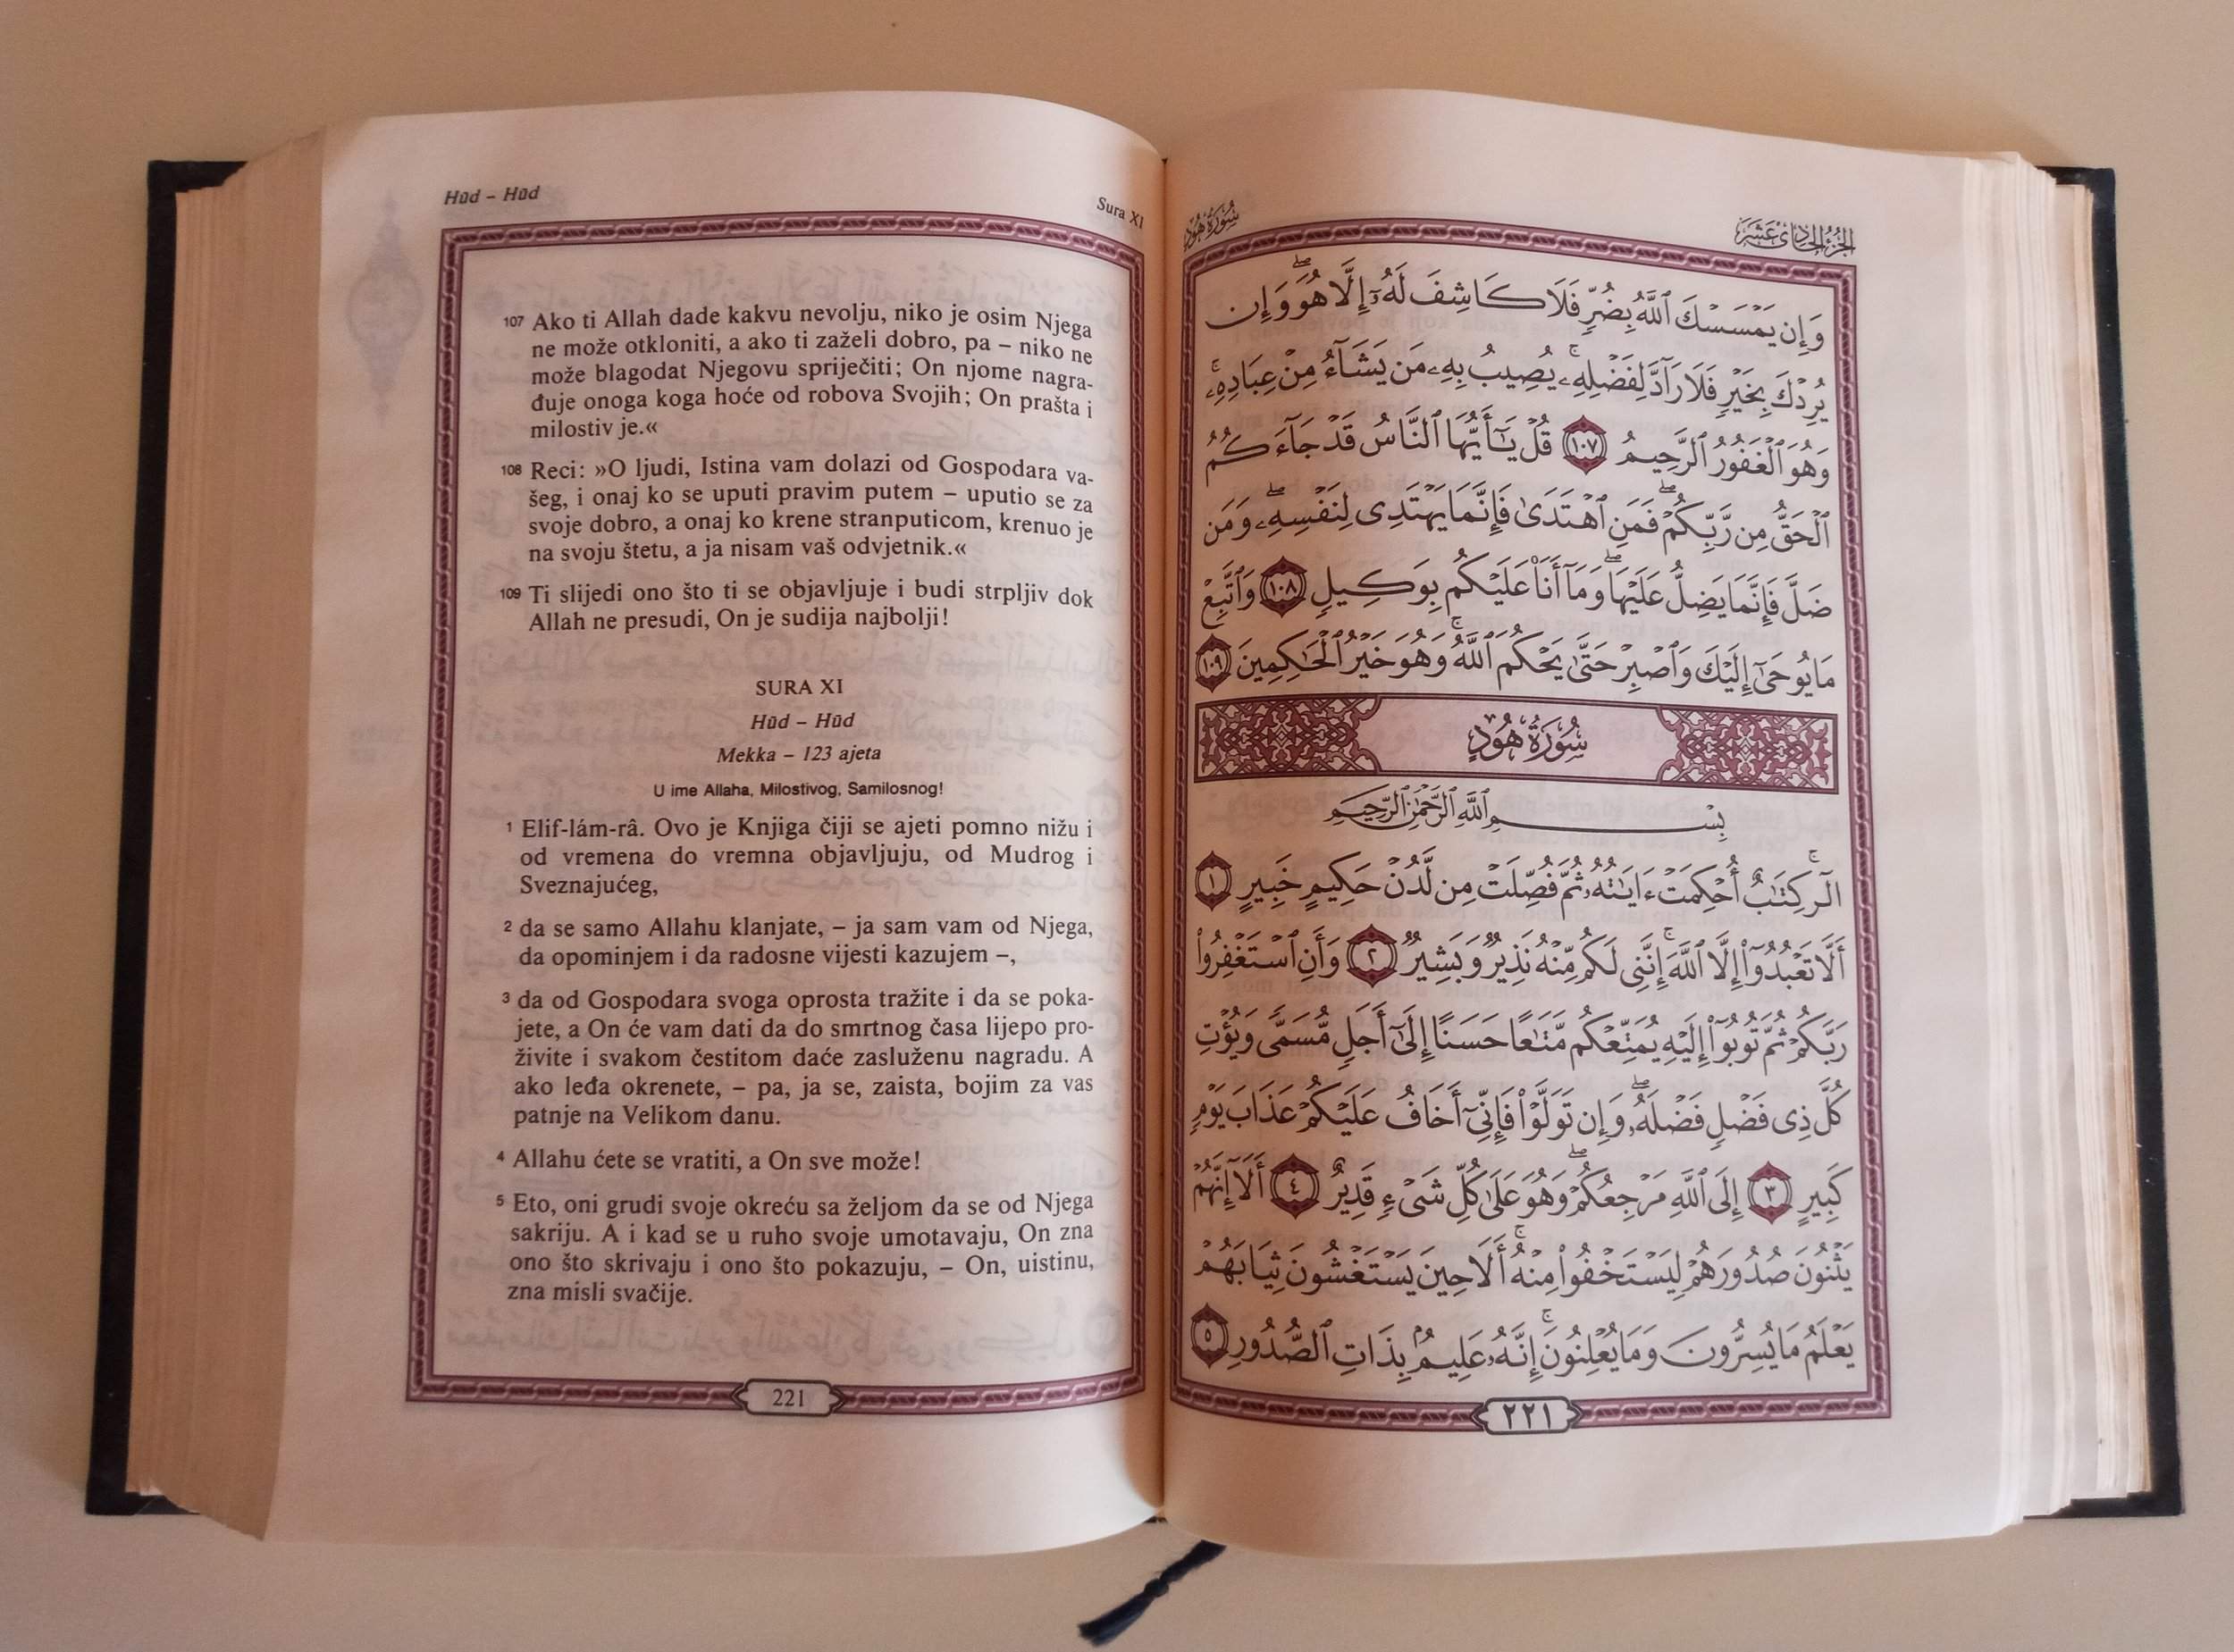 Hūd – Hūd
Sura XI
107 Ako ti Allah dade kakvu nevolju, niko je osim Njega
ne može otkloniti, a ako ti zaželi dobro, pa – niko ne
može blagodat Njegovu spriječiti; On njome nagra-
đuje onoga koga hoće od robova Svojih; On prašta i
milostiv je.«
108 Reci: »O ljudi, Istina vam dolazi od Gospodara va-
šeg, i onaj ko se uputi pravim putem – uputio se za
svoje dobro, a onaj ko krene stranputicom, krenuo je
na svoju štetu, a ja nisam vaš odvjetnik.«
109 Ti slijedi ono što ti se objavljuje i budi strpljiv dok
Allah ne presudi, On je sudija najbolji!
SURA XI
Hūd – Hūd
Mekka – 123 ajeta
U ime Allaha, Milostivog, Samilosnog!
1 Elif-lám-râ. Ovo je Knjiga čiji se ajeti pomno nižu i
od vremena do vremna objavljuju, od Mudrog i
Sveznajućeg,
2 da se samo Allahu klanjate, – ja sam vam od Njega,
da opominjem i da radosne vijesti kazujem –,
3 da od Gospodara svoga oprosta tražite i da se poka-
jete, a On će vam dati da do smrtnog časa lijepo pro-
živite i svakom čestitom daće zasluženu nagradu. A
ako leđa okrenete, – pa, ja se, zaista, bojim za vas
patnje na Velikom danu.
4 Allahu ćete se vratiti, a On sve može!
5 Eto, oni grudi svoje okreću sa željom da se od Njega
sakriju. A i kad se u ruho svoje umotavaju, On zna
ono što skrivaju i ono što pokazuju, – On, uistinu,
zna misli svačije.
221
الجزء الحادي عشر
سورة هود
وَإِن يَمْسَسْكَ ٱللَّهُ بِضُرٍّ فَلَا كَاشِفَ لَهُۥٓ إِلَّا هُوَۖ وَإِن
يُرِدْكَ بِخَيْرٍ فَلَا رَآدَّ لِفَضْلِهِۦۚ يُصِيبُ بِهِۦ مَن يَشَآءُ مِنْ عِبَادِهِۦۚ
وَهُوَ ٱلْغَفُورُ ٱلرَّحِيمُ ١٠٧ قُلْ يَٰٓأَيُّهَا ٱلنَّاسُ قَدْ جَآءَكُمُ
ٱلْحَقُّ مِن رَّبِّكُمْۖ فَمَنِ ٱهْتَدَىٰ فَإِنَّمَا يَهْتَدِى لِنَفْسِهِۦۖ وَمَن
ضَلَّ فَإِنَّمَا يَضِلُّ عَلَيْهَاۖ وَمَآ أَنَا۠ عَلَيْكُم بِوَكِيلٍ ١٠٨ وَٱتَّبِعْ
مَا يُوحَىٰٓ إِلَيْكَ وَٱصْبِرْ حَتَّىٰ يَحْكُمَ ٱللَّهُۚ وَهُوَ خَيْرُ ٱلْحَٰكِمِينَ ١٠٩
سُورَةُ هُودٍ
بِسْمِ ٱللَّهِ ٱلرَّحْمَٰنِ ٱلرَّحِيمِ
الٓرۚ كِتَٰبٌ أُحْكِمَتْ ءَايَٰتُهُۥ ثُمَّ فُصِّلَتْ مِن لَّدُنْ حَكِيمٍ خَبِيرٍ ١
أَلَّا تَعْبُدُوٓا۟ إِلَّا ٱللَّهَۚ إِنَّنِى لَكُم مِّنْهُ نَذِيرٌ وَبَشِيرٌ ٢ وَأَنِ ٱسْتَغْفِرُوا۟
رَبَّكُمْ ثُمَّ تُوبُوٓا۟ إِلَيْهِ يُمَتِّعْكُم مَّتَٰعًا حَسَنًا إِلَىٰٓ أَجَلٍ مُّسَمًّى وَيُؤْتِ
كُلَّ ذِى فَضْلٍ فَضْلَهُۥۖ وَإِن تَوَلَّوْا۟ فَإِنِّىٓ أَخَافُ عَلَيْكُمْ عَذَابَ يَوْمٍ
كَبِيرٍ ٣ إِلَى ٱللَّهِ مَرْجِعُكُمْۖ وَهُوَ عَلَىٰ كُلِّ شَىْءٍ قَدِيرٌ ٤ أَلَآ إِنَّهُمْ
يَثْنُونَ صُدُورَهُمْ لِيَسْتَخْفُوا۟ مِنْهُۚ أَلَا حِينَ يَسْتَغْشُونَ ثِيَابَهُمْ
يَعْلَمُ مَا يُسِرُّونَ وَمَا يُعْلِنُونَۚ إِنَّهُۥ عَلِيمٌۢ بِذَاتِ ٱلصُّدُورِ ٥
٢٢١